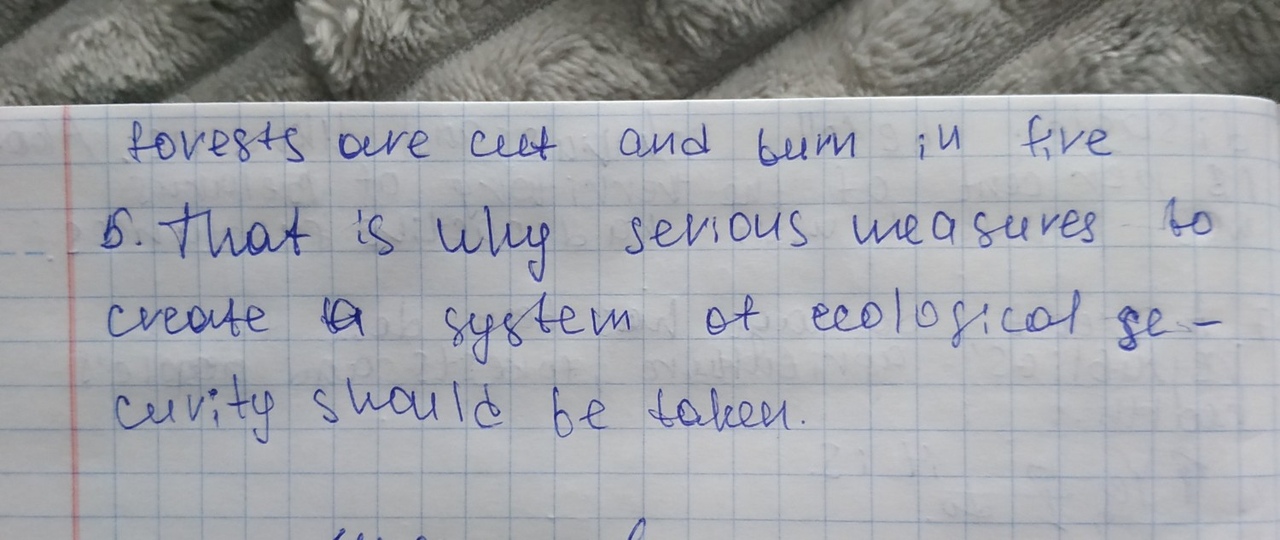 forests are cut and burn in fire
5. That is why serious measures to
create a system of ecological se-
curity should be taken.